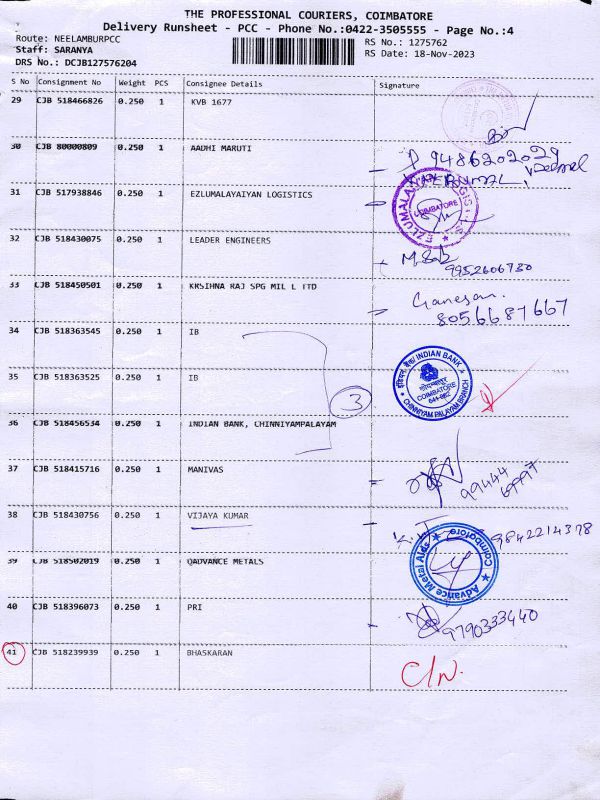 THE PROFESSIONAL COURIERS, COIMBATORE
Delivery Runsheet - PCC - Phone No.:0422-3505555 - Page No.:4
Route: NEELAMBURPCC
Staff: SARANYA
DRS No.: DCJB127576204
RS No.: 1275762
RS Date: 18-Nov-2023
S No Consignment No Weight PCS Consignee Details Signature
29 CJB 518466826 0.250 1 KVB 1677
30 CJB 80000809 0.250 1 AADHI MARUTI
P 9486202029
31 CJB 517938846 0.250 1 EZLUMALAYAIYAN LOGISTICS
COIMBATORE
32 CJB 518430075 0.250 1 LEADER ENGINEERS
9952606730
33 CJB 518450501 0.250 1 KKSIHNA RAJ SPG MIL L ITD
Ganesan.
8056687667
34 CJB 518363545 0.250 1 IB
35 CJB 518363525 0.250 1 IB
3
INDIAN BANK
COIMBATORE
CHINNIYAM PALAYAM BRANCH
36 CJB 518456534 0.250 1 INDIAN BANK, CHINNIYAMPALAYAM
37 CJB 518415716 0.250 1 MANIVAS
99444
38 CJB 518430756 0.250 1 VIJAYA KUMAR
9842214378
39 CJB 518502019 0.250 1 QADVANCE METALS
Advance Metal Aids
Coimbatore
40 CJB 518396073 0.250 1 PRI
9790333440
41 CJB 518239939 0.250 1 BHASKARAN
C/N.